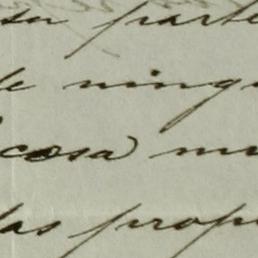 su parte
de ningu
cosa) m
las prop